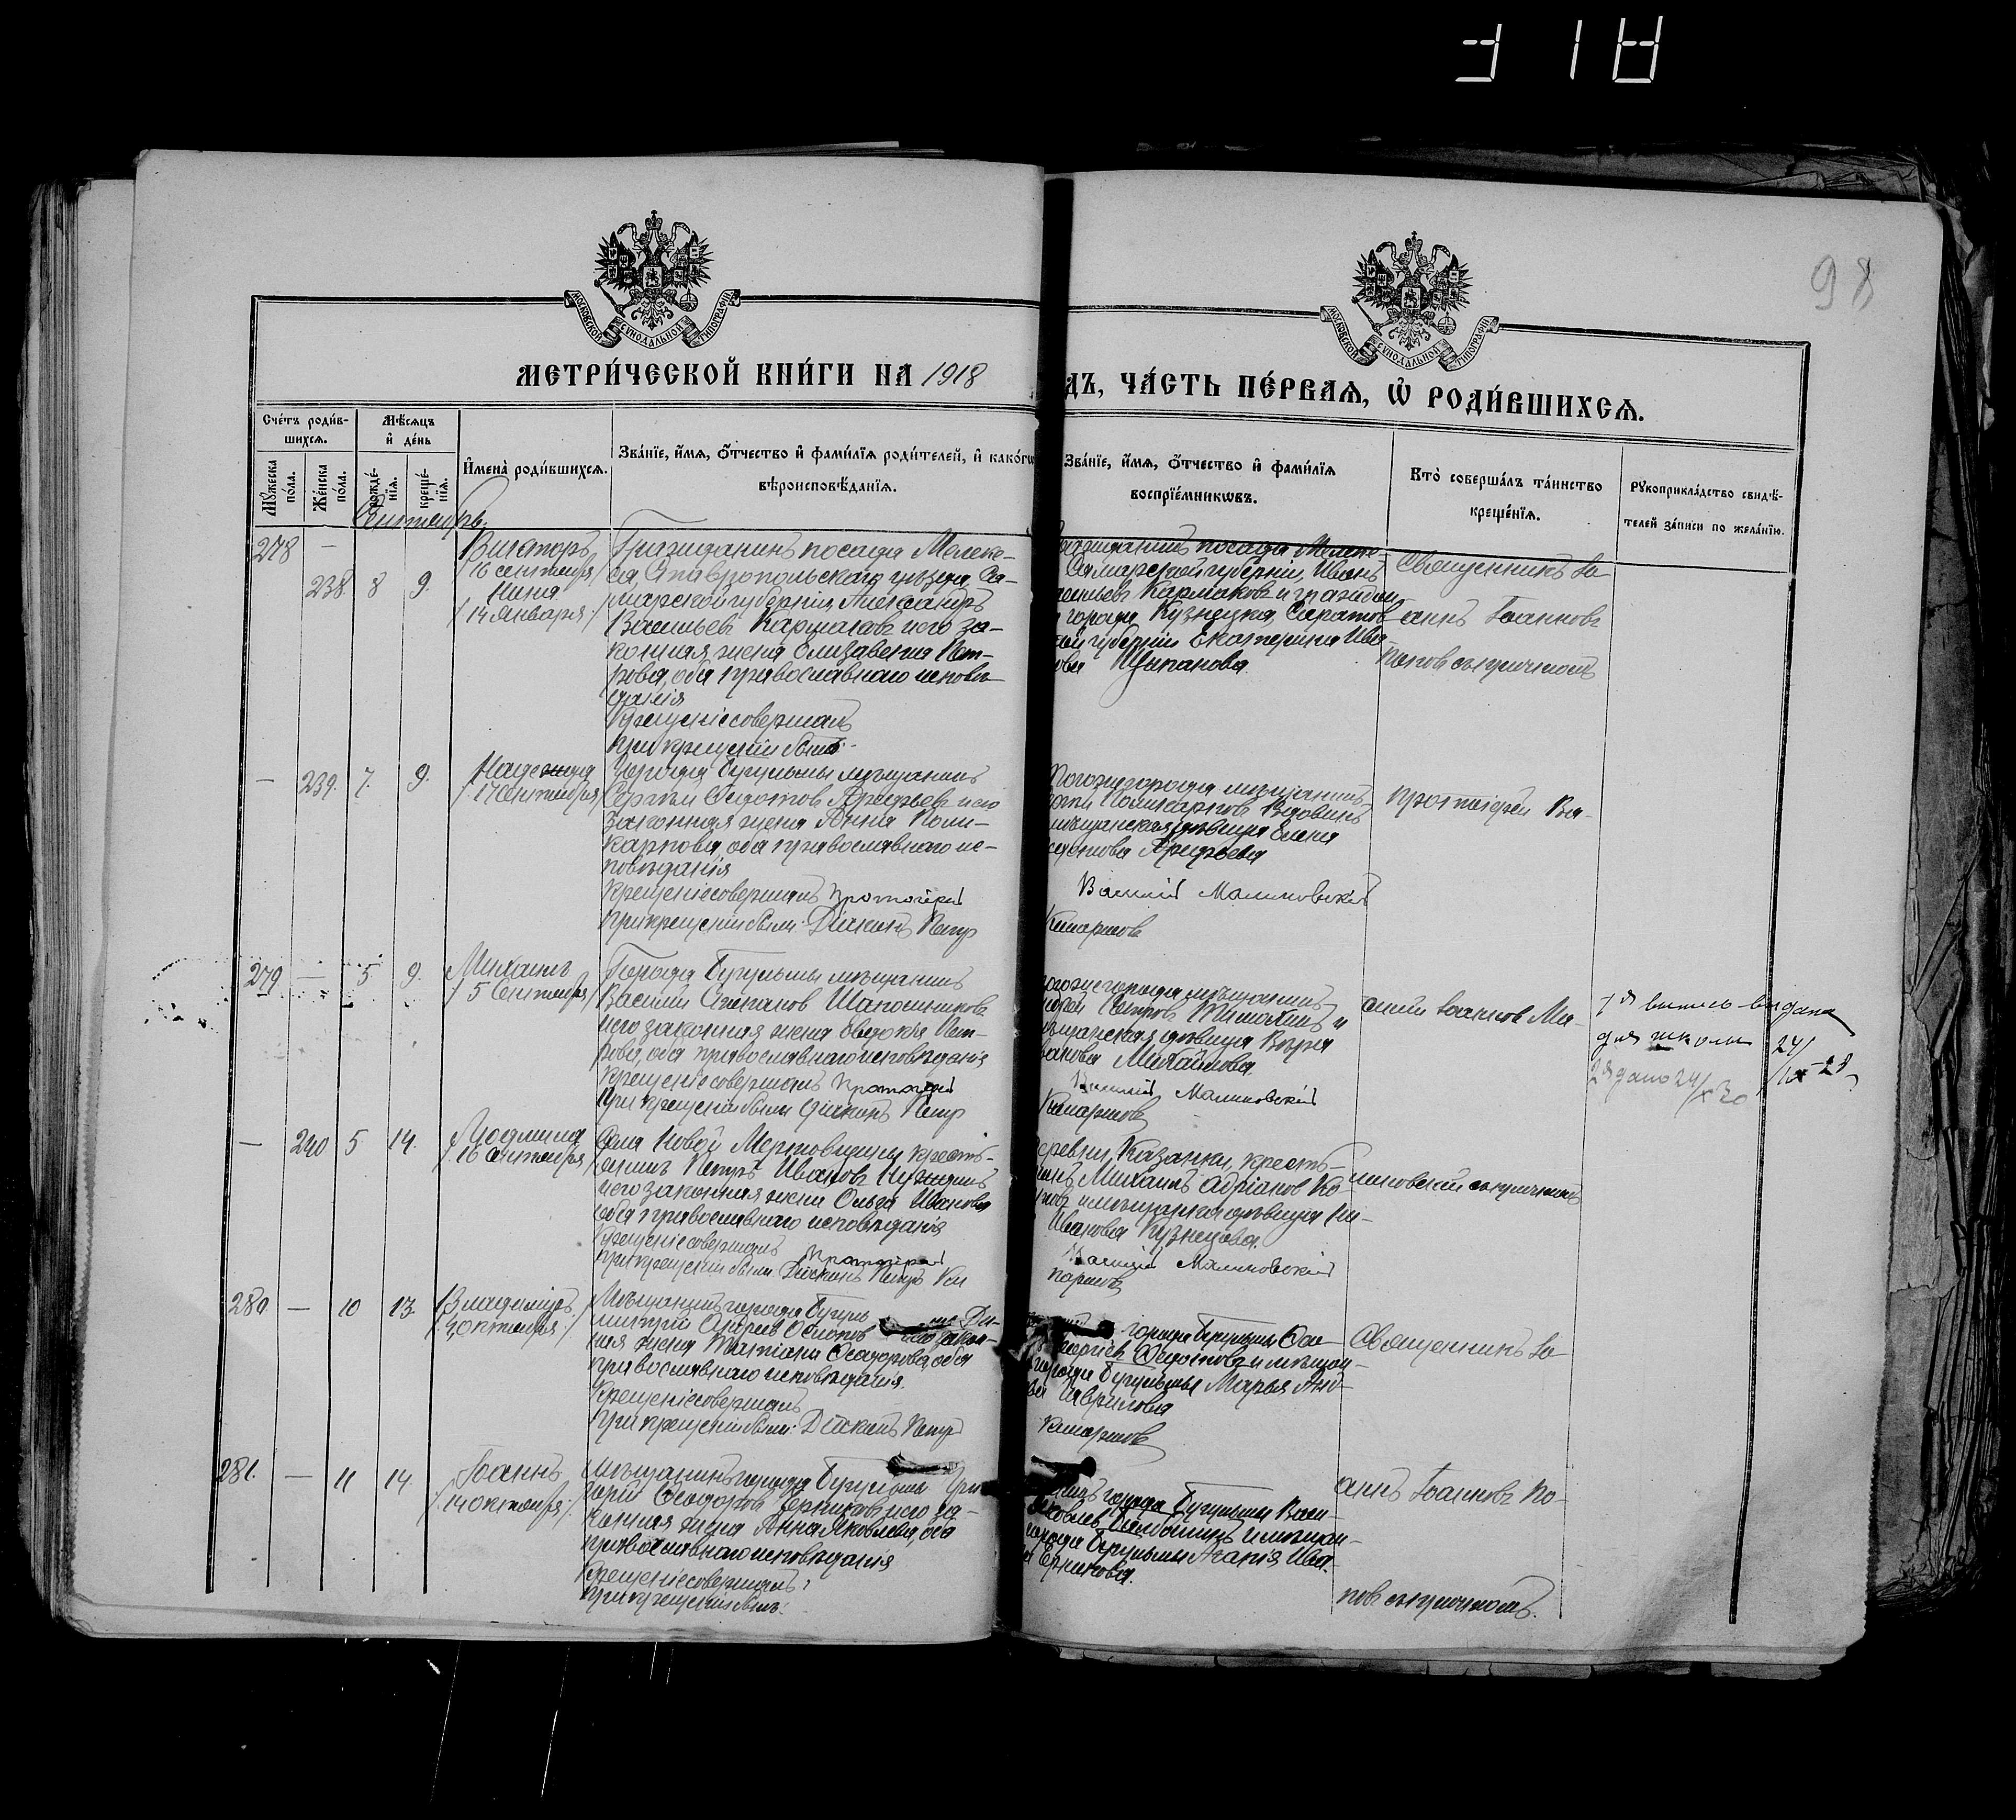 98
МОСКОВСКОЙ СѴНОДАЛЬНОЙ ТИПОГРАФІИ
МОСКОВСКОЙ СѴНОДАЛЬНОЙ ТИПОГРАФІИ
МЕТРИ́ЧЕСКОЙ КНИ́ГИ НА 1918
ДЪ, ЧА́СТЬ ПЕ́РВАЯ, Ѡ РОДИ́ВШИХСЯ.
Счетъ роди́в-
шихся.
Мѣсяцъ
и де́нь
Мꙋжеска
по́ла.
Же́нска
по́ла.
рожде́-
нїя.
креще́-
нїя.
Имена̀ роди́вшихся.
Зва́нїе, и́мя, ѻ҆́тчество и҆ фами́лїя роди́телей, и҆ како́гѡ
вѣроисповѣ́данїя.
Зва́нїе, и́мя, ѻ҆́тчество и҆ фами́лїя
воспрїе́мникѡвъ.
Кто̀ соверша́лъ та́инство
креще́нїя.
Рꙋкоприкла́дство свидѣ́-
телей за́писи по жела́нїю.
Сентябрь.
278 —
238. 8 9.
Викторъ
/16 сентября/
Нина
/14 Января/
Гражданинъ посада Мелеке-
са, Ставропольскаго уѣзда, Са-
марской губерніи Александръ
Васильевъ Кармаковъ и его за-
конная жена Елизавета Пет-
рова, оба православнаго исповѣ-
данія
Крещеніе совершалъ
При крещеніи былъ:
гражданинъ посада Мелеке-
Самарской губерніи, Иванъ
Кармаковъ и граждан-
города Кузнецка, Саратов-
губерніи Екатерина Ива-
Цыпанова.
Священникъ Іо-
аннъ Іоанновъ
Поповъ съ причтомъ
— 239. 7. 9.
Надежда
/17 Сентября/
Города Бугульмы мѣщанинъ
Сергѣй Ѳедотовъ Арефьевъ и его
законная жена Анна Поли-
карпова, оба православнаго ис-
повѣданія
Крещеніе совершалъ Протоіерей
При крещеніи были: Діаконъ Петръ
Тогоже города мѣщанинъ
Поликарповъ Вдовинъ
мѣщанская дѣвица Елена
Арефьева
Василій Малиновскій
Протоіерей Ва-
279. — 5 9.
Михаилъ
/5 Сентября/
Города Бугульмы мѣщанинъ
Василій Степановъ Шапошниковъ
и его законная жена Евдокія Пет-
рова, оба православнаго исповѣданія
Крещеніе совершалъ Протоіерей
При крещеніи были діаконъ Петръ
тогоже города мѣщанинъ
Петровъ и
мѣщанская дѣвица Вѣра
Михайлова.
Василій Малиновскій
силій Іоанновъ Ма-
1я выпись выдана
для школы 24/
IX–28
2я дано 24/X 30
— 240 5 14.
Людмила
/16 сентября/
Села Новой Мертовщины, кресть-
янинъ Петръ Ивановъ
и его законная жена Ольга Иванова
оба православнаго исповѣданія
Крещеніе совершалъ Протоіерей
При крещеніи были Діаконъ Петръ
деревни Казанки, кресть-
Михаилъ Адріановъ Ко-
дѣвица
Иванова Кузнецова.
Василій Малиновскій
линовскій съ причтомъ
280 — 10 13.
Владиміръ
/ Октября/
Мѣщанинъ города
митрій Осиповъ его закон-
ная жена Татіана Ѳеодорова, оба
православнаго исповѣданія.
Крещеніе совершалъ
При крещеніи были: Діаконъ Петръ
города Бугульмы
и мѣщан-
города Бугульмы Марья
Гаврилова
Священникъ Іо-
281. — 11 14.
Іоаннъ
/14 октября/
Мѣщанинъ города Бугульмы Гри-
горій Ѳеодоровъ и его за-
конная жена Анна Яковлева, оба
православнаго исповѣданія
Крещеніе совершалъ:
При крещеніи былъ:
города Бугульмы
и мѣщан-
города Бугульмы Агапія Ива-
аннъ Іоанновъ По-
повъ съ причтомъ.